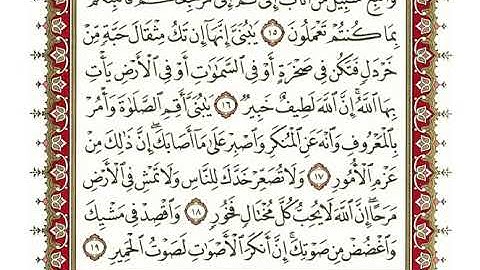 وَٱتَّبِعۡ سَبِيلَ مَنۡ أَنَابَ إِلَيَّۚ ثُمَّ إِلَيَّ مَرۡجِعُكُمۡ فَأُنَبِّئُكُم
بِمَا كُنتُمۡ تَعۡمَلُونَ ١٥ يَٰبُنَيَّ إِنَّهَآ إِن تَكُ مِثۡقَالَ حَبَّةٖ مِّنۡ
خَرۡدَلٖ فَتَكُن فِي صَخۡرَةٍ أَوۡ فِي ٱلسَّمَٰوَٰتِ أَوۡ فِي ٱلۡأَرۡضِ يَأۡتِ
بِهَا ٱللَّهُۚ إِنَّ ٱللَّهَ لَطِيفٌ خَبِيرٞ ١٦ يَٰبُنَيَّ أَقِمِ ٱلصَّلَوٰةَ وَأۡمُرۡ
بِٱلۡمَعۡرُوفِ وَٱنۡهَ عَنِ ٱلۡمُنكَرِ وَٱصۡبِرۡ عَلَىٰ مَآ أَصَابَكَۖ إِنَّ ذَٰلِكَ مِنۡ
عَزۡمِ ٱلۡأُمُورِ ١٧ وَلَا تُصَعِّرۡ خَدَّكَ لِلنَّاسِ وَلَا تَمۡشِ فِي ٱلۡأَرۡضِ
مَرَحًاۖ إِنَّ ٱللَّهَ لَا يُحِبُّ كُلَّ مُخۡتَالٖ فَخُورٖ ١٨ وَٱقۡصِدۡ فِي مَشۡيِكَ
وَٱغۡضُضۡ مِن صَوۡتِكَۚ إِنَّ أَنكَرَ ٱلۡأَصۡوَٰتِ لَصَوۡتُ ٱلۡحَمِيرِ ١٩